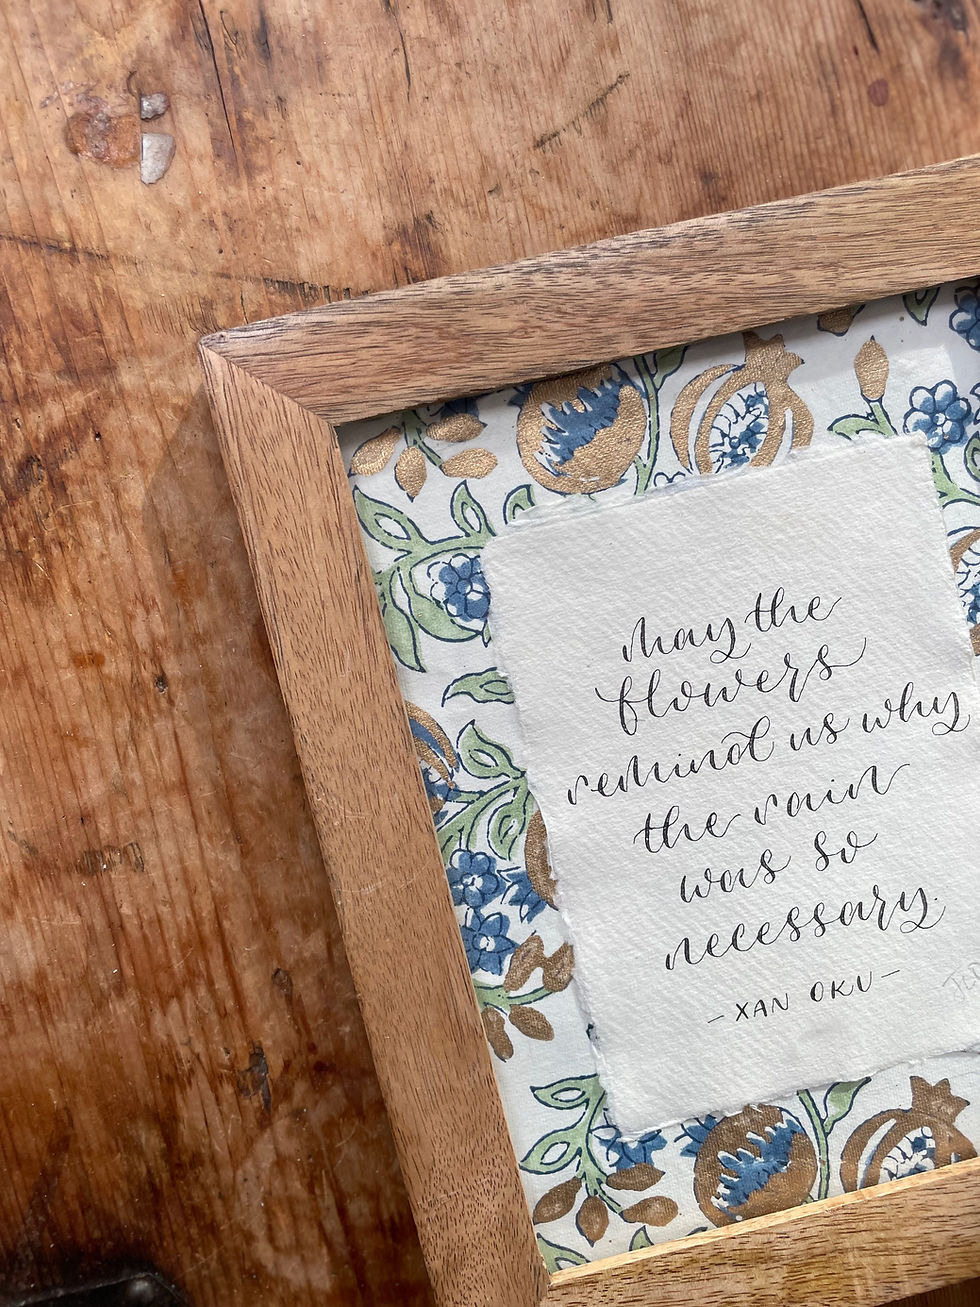 may the
flowers
remind us why
the rain
was so
necessary.
- XAN OKU -